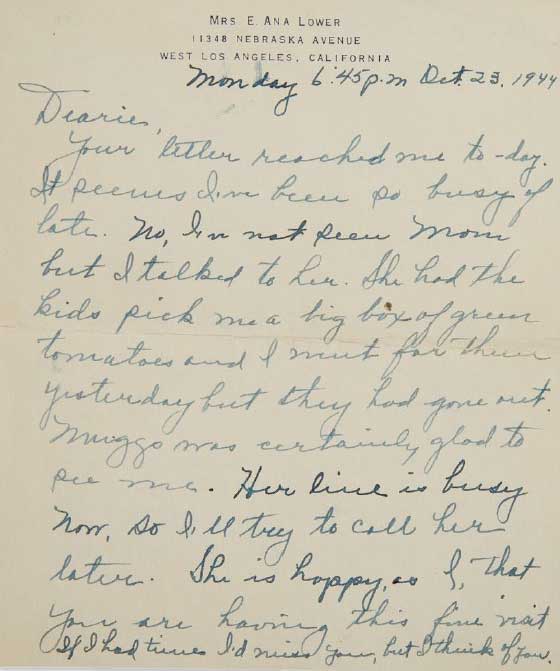 MRS. E. ANA LOWER
11348 NEBRASKA AVENUE
WEST LOS ANGELES, CALIFORNIA
Monday 6:45 p.m Oct. 23, 1944
Dearies,
Your letter reached me to-day.
It seems I've been so busy of
late. No, I've not seen Mom
but I talked to her. She had the
kids pick me a big box of green
tomatoes and I went for them
yesterday but they had gone out.
Muggs was certainly glad to
see me. Her line is busy
now, so I'll try to call her
later. She is happy, as I, that
you are having this fine visit
If I had time I'd miss you, but I think of you